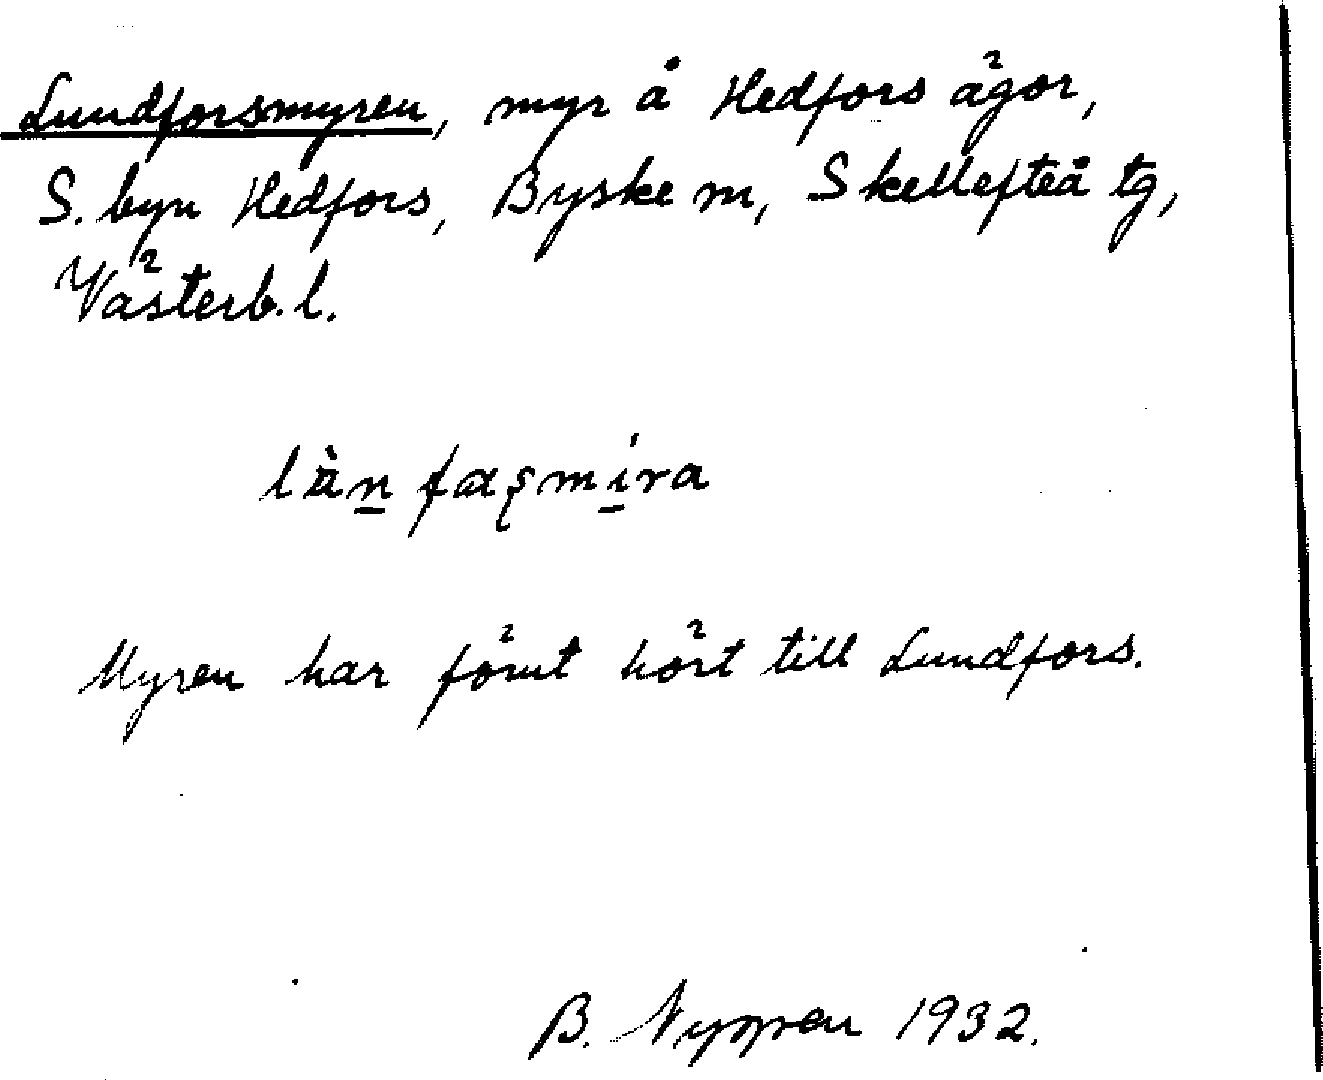 Lundforsmyren, myr å Hedfors ägor,
S. byn Hedfors, Byske sn, Skellefteå tg,
Västerb. l.
làn faʂmíra
Myren har förut hört till Lundfors.
B. 1932.